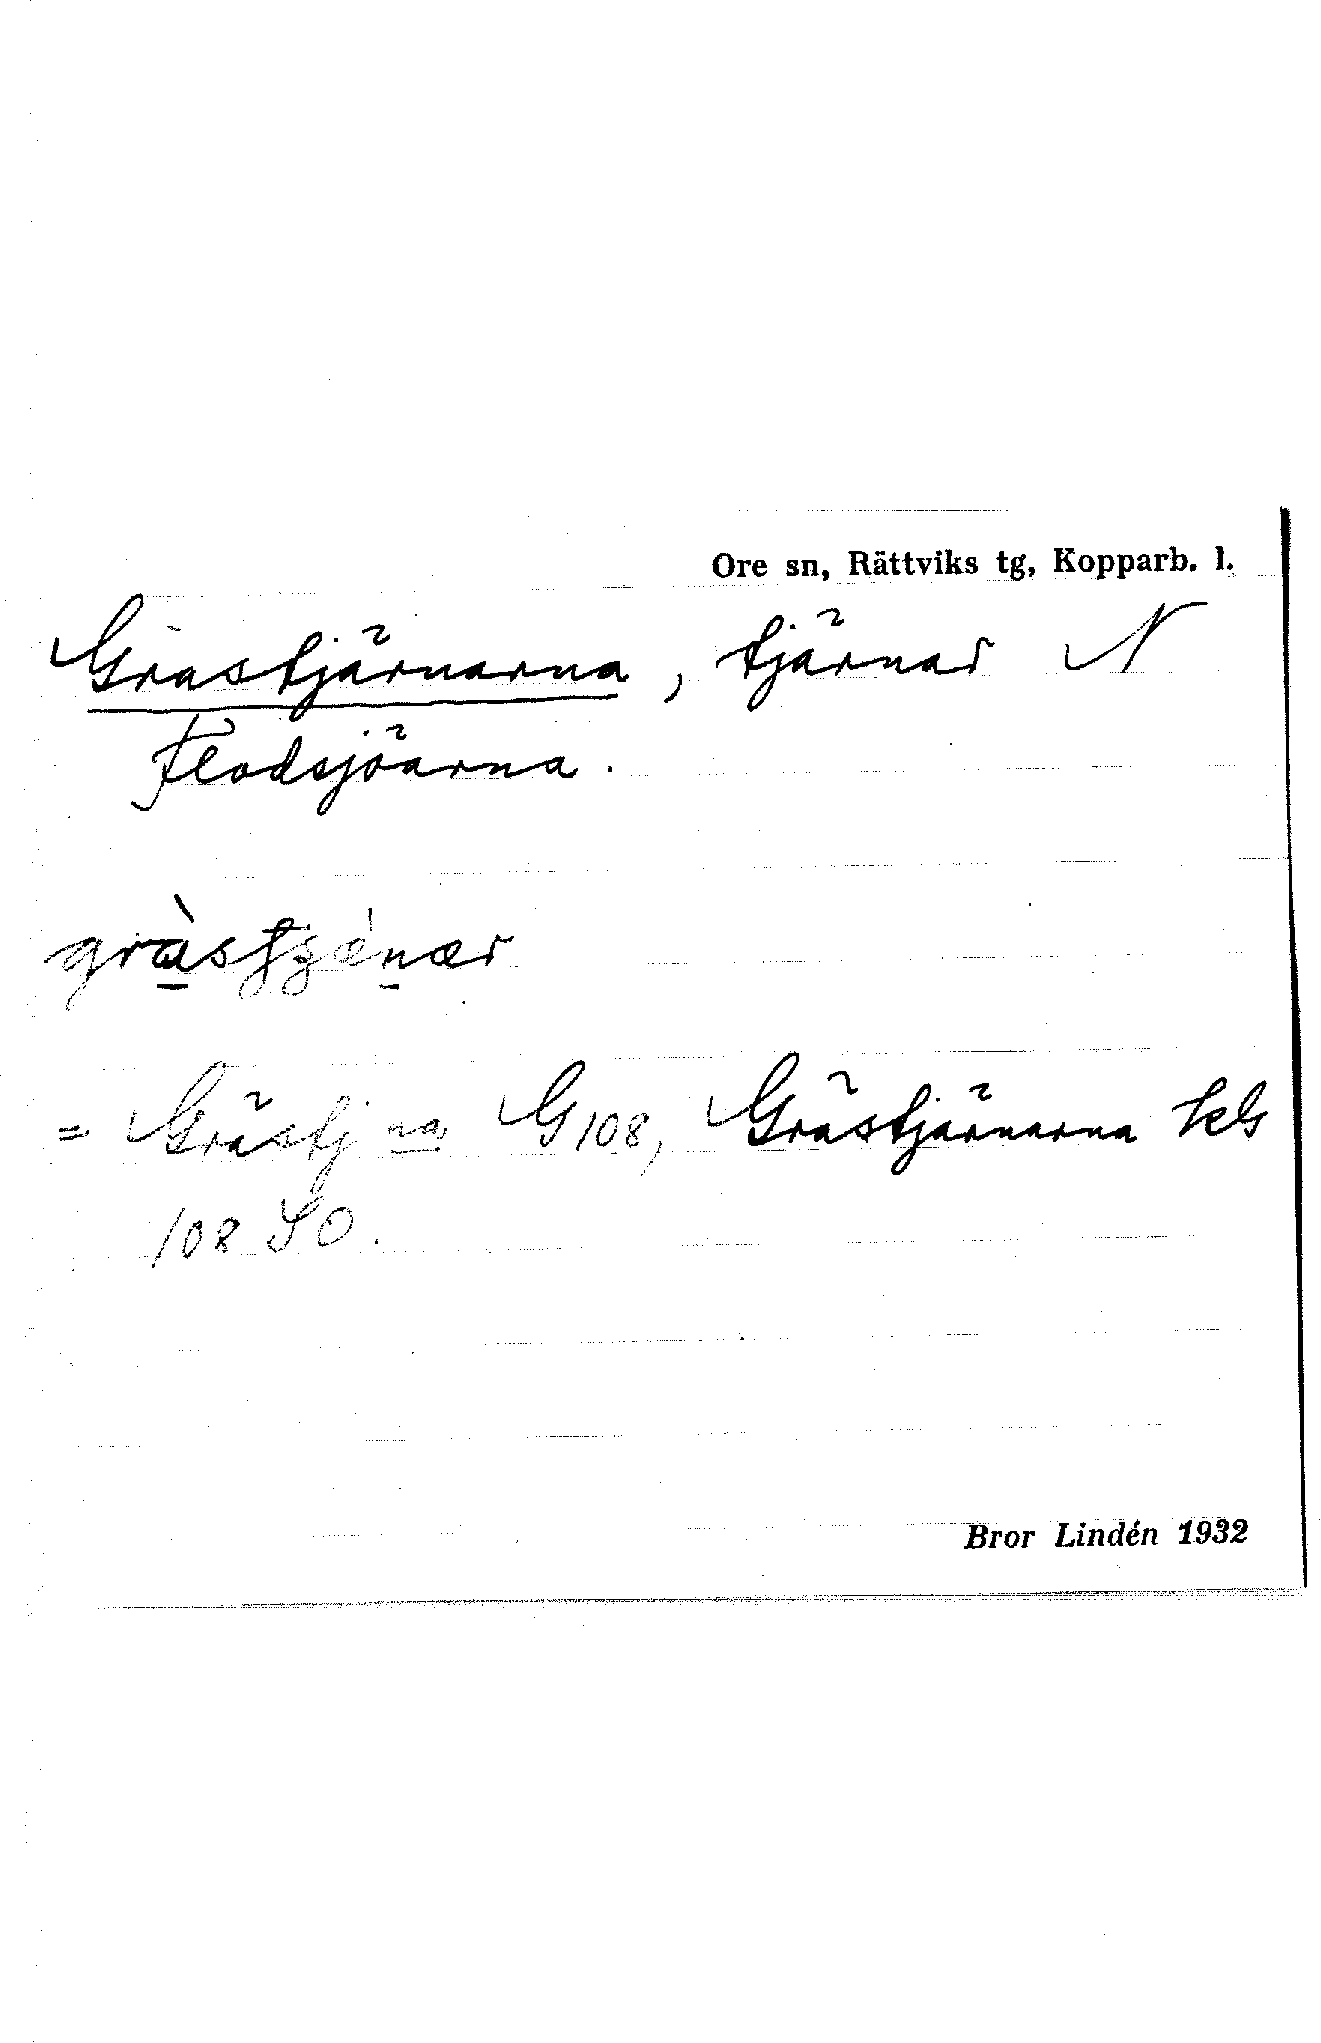 Ore sn, Rättviks tg, Kopparb. l.
Grastjärnarna, tjärnar N
Flodsjöarna.
= Grästj na G 108, Grästjärnarna kb
108 SO.
Bror Lindén 1932